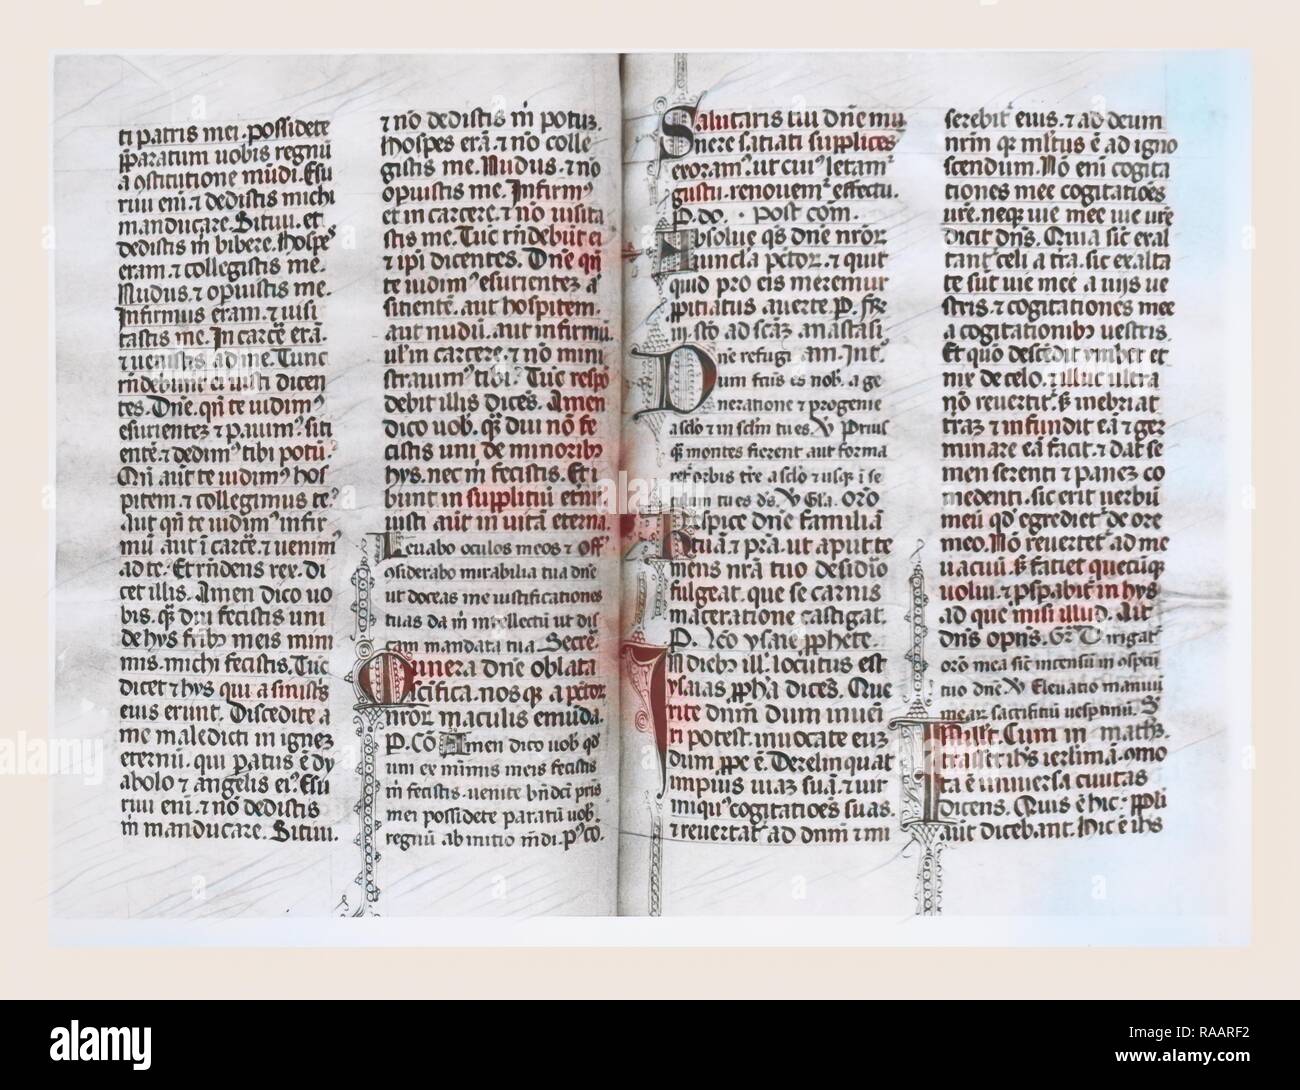 ti patris mei. possidete
p̄paratum uobis regnū
a ꝯstitutione mūdi. Esu
riui eni. ⁊ dedistis michi
manducare. Sitiui. et
dedistis m̄ bibere. Hospes
eram. ⁊ collegistis me.
Nudus. ⁊ opuistis me.
Infirmus eram. ⁊ uisi
tastis me. In carcē erā.
⁊ uenistis ad me. Tunc
rn̄debunt ei iusti dicen
tes. Dn̄e. qn̄ te uidimꝰ
esurientez ⁊ pauimꝰ. siti
ente. ⁊ dedimꝰ tibi potū.
Qn̄ aūt te uidimꝰ hos
pitem. ⁊ collegimus te.
Aut qn̄ te uidimꝰ infir
mū aut ī carcē. ⁊ uenimꝰ
ad te. Et rn̄dens rex. di
cet illis. Amen dico uo
bis. qm̄ diu fecistis uni
de hys frībꝫ meis mini
mis. michi fecistis. Tūc
dicet ⁊ hys qui a sinistris
eius erunt. Discedite a
me maledicti in ignez
eternū. qui patus ē dy
abolo ⁊ angelis eiꝰ. Esu
riui eni. ⁊ nō dedistis
m̄ manducare. Sitiui.
⁊ nō dedistis m̄ potuz.
Hospes erā. ⁊ nō colle
gistis me. Nudus. ⁊ nō
opuistis me. Infirmꝰ
et in carcere. ⁊ nō uisita
stis me. Tūc rn̄debūt ei
⁊ ipi dicentes. Dn̄e qn̄
te uidimꝰ esurientez aꝰ
sitientē. aut hospitem.
aut nudū. aut infirmū.
ul' in carcere. ⁊ nō mini
strauimꝰ tibi. Tūc respō
debit illis dicēs. Amen
dico uob. qm̄ diu nō fe
cistis uni de minoribꝫ
hys. nec m̄ fecistis. Et i
bunt in suppliciū etnū
iusti aūt in uitā eternā.
Leuabo oculos meos ⁊ Off'
ꝯsiderabo mirabilia tua dn̄e
ut doceas me iustificationes
tuas da m̄ intellectū ut dis
cam mandata tua. Secrē.
Munera dn̄e oblata
sc̄ifica. nosqꝫ a pctor
nrōr maculis emūda.
P. Cō Amen dico uob qd'
um ex minimis meis fecistis
m̄ fecistis. uenite bn̄dci pris
mei possidete paratū uob.
regnū ab initio mdi. Pꝰco.
Salutaris tui dn̄e mu
nere satiati supplices
exoramꝰ. ut cuiꝰ letamꝰ
gustu. renouemꝰ effectu.
P. do. Post com.
Absolue qs dn̄e nrōr
uincla pctor. ⁊ quic
quid pro eis meremur
ppitiatus auerte. P. fr̄
iii. Sto ad scāz anastasi
Dn̄e refugi am. Int'
um fcūs es nob. a ge
neratione ⁊ progenie
a sclo ⁊ in sclm tu es. V Prius
qm̄ montes fierent aut forma
ret' orbis tr̄e a sclo ⁊ usqꝫ i se
culum tu es ds. V Gla. Orō
Respice dn̄e familiā
tuā. ⁊ prā. ut aput te
mens nrā tuo desidio
fulgeat. que se carnis
maceratione castigat.
P. Lco ysaie pphete.
In diebꝫ ill'. locutus est
ysaias ppha dicēs. Que
rite dnm̄ dum inueni
ri potest. inuocate euz
dum ppe ē. Derelinquat
impius uiaz suā. ⁊ uir
iniquꝰ cogitatioēs suas.
⁊ reuertat' ad dnm̄ ⁊ mi
serebit' eius. ⁊ ad deum
nrm̄ qm̄ mltus ē ad igno
scendum. Nō eni cogita
tiones mee cogitatioēs
ure. neqꝫ uie mee uie ure
dicit dns. Quia sic exal
tant' celi a tra. sic exalta
te sūt uie mee a uiis ue
stris. ⁊ cogitationes mee
a cogitationibꝫ uestris.
Et quō descēdit ymber et
nix de celo. ⁊ illuc ultra
nō reuertit'. s; inebriat
traz ⁊ infundit eā ⁊ ger
minare eā facit. ⁊ dat se
men serenti ⁊ panez co
medenti. sic erit uerbū
meū qd' egrediet' de ore
meo. Nō reuertet' ad me
uacuū. s; faciet quecūqꝫ
uolui. ⁊ psperabit' in hys
ad que misi illud. Ait
dns opns. Gr' Dirigat'
orō mea sic incensū in ꝯspectū
tuo dn̄e. V Eleuatio manuū
mearꝫ sacrificiū uesptinū. S
In ill' t'. Cum in math'.
trassetihs ierl'imā. ꝯmo
ta ē uniuersa ciuitas
dicens. Quis ē hic. Ppli
aūt dicebant. Hic ē ihs
alamy
Image ID: RAARF2
www.alamy.com